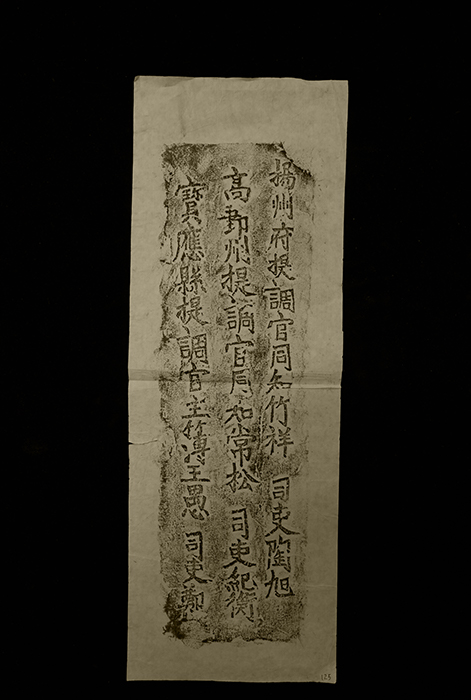 揚州府提調官同知竹祥 司吏陶旭
高郵州提調官同知常松 司吏紀衡
寶應縣提調官主簿王愚 司吏鄭